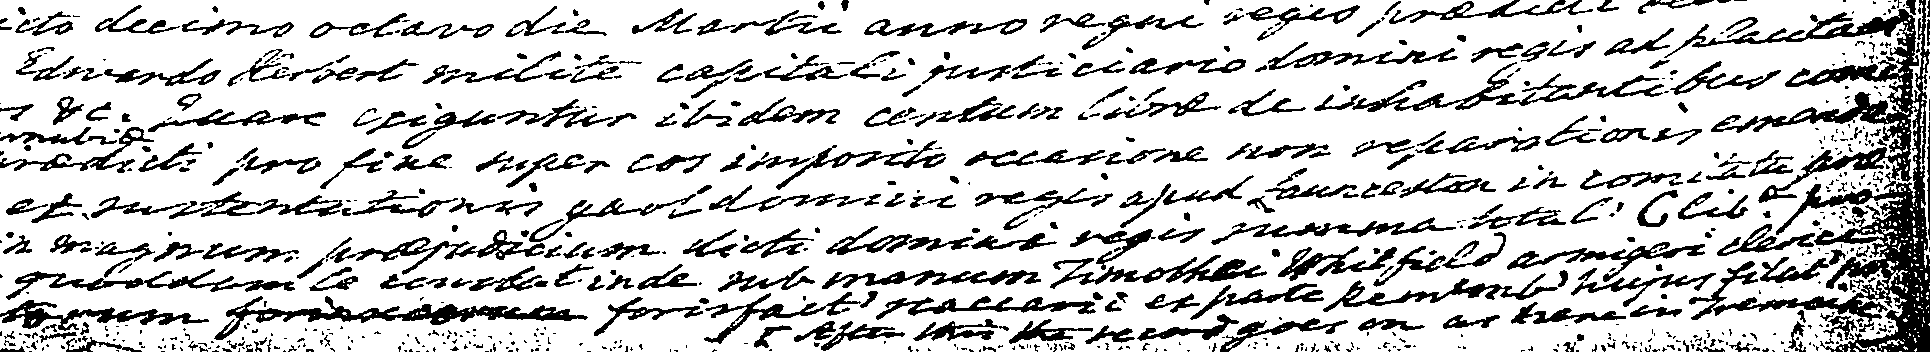 icto decimo octavo die Martii anno regni regis prædicti
Edwardo Herbert milite capitali justiciario domini regis ad placita
&c. Quare exiguntur ibidem centum libræ de inhabitantibus com
nubiæ
prædicti pro fine super eos imposito occasione non reparationis emend
et sustentationis gaol domini regis apud Launceston in comitatu præ
in magnum præjudicium dicti domini regis summa total' C lib.
quoddam le constat inde sub manum Timothei Whitfield armigeri clerici
forisfact' scaccarii ex parte Rem hujus filat'
[ After this the record goes on as there in